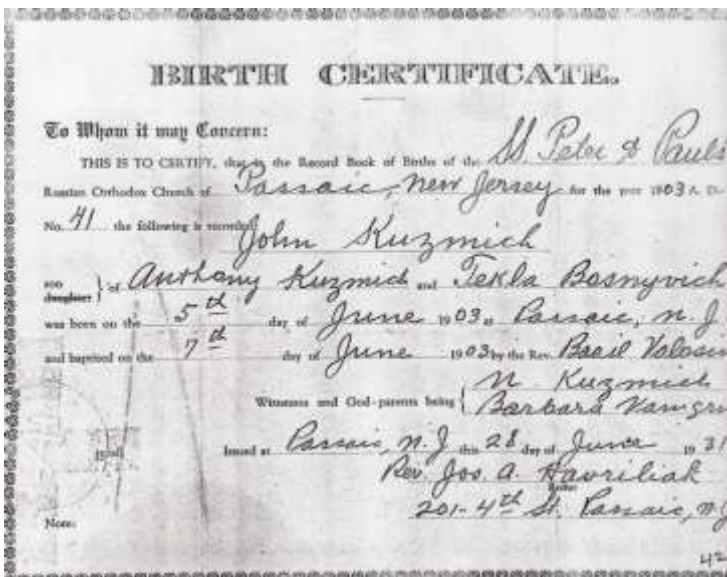 BIRTH CERTIFICATE.
To Whom it may Concern:
SS Peter & Pauls
THIS IS TO CERTIFY, that in the Record Book of Births of the
Russian Orthodox Church of Passaic, New Jersey for the year 1903 A. D.
No. 41 the following is recorded
John Kuzmich
son
daughter } of Anthony Kuzmich and Tekla
was born on the 5th day of June 1903 at Passaic, N. J
and baptised on the 7th day of June 1903 by the Rev. Basil
Witnesses and God-parents being { N. Kuzmich
Barbara
Issued at Passaic, N. J this 28 day of June 1931
[Seal]
Rev. Jos. A. Havriliak
Rector
201-4th St. Passaic, N.J
Note: